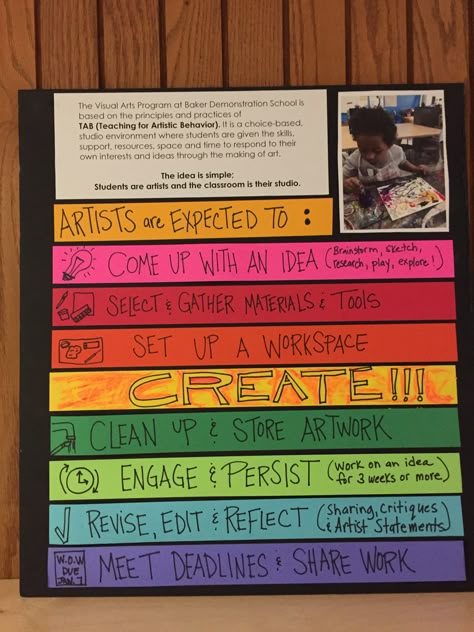 The Visual Arts Program at Baker Demonstration School is
based on the principles and practices of
TAB (Teaching for Artistic Behavior). It is a choice-based,
studio environment where students are given the skills,
support, resources, space and time to respond to their
own interests and ideas through the making of art.
The idea is simple;
Students are artists and the classroom is their studio.
ARTISTS are EXPECTED TO :
COME UP WITH AN IDEA (Brainstorm, sketch,
research, play, explore!)
SELECT & GATHER MATERIALS & TOOLS
SET UP A WORKSPACE
CREATE!!!
CLEAN UP & STORE ARTWORK
ENGAGE & PERSIST (Work on an idea
for 3 weeks or more)
REVISE, EDIT & REFLECT (Sharing, Critiques
& Artist Statements)
W.O.W
DUE
JAN. 7
MEET DEADLINES & SHARE WORK